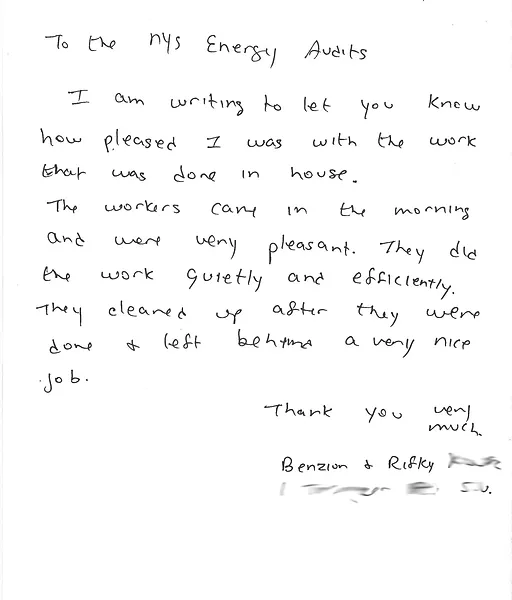 To the nys Energy Audits
I am writing to let you know
how pleased I was with the work
that was done in house.
The workers came in the morning
and were very pleasant. They did
the work quietly and efficiently.
They cleaned up after they were
done & left behind a very nice
job.
Thank you very
much.
Benzion & Rifky
S.V.